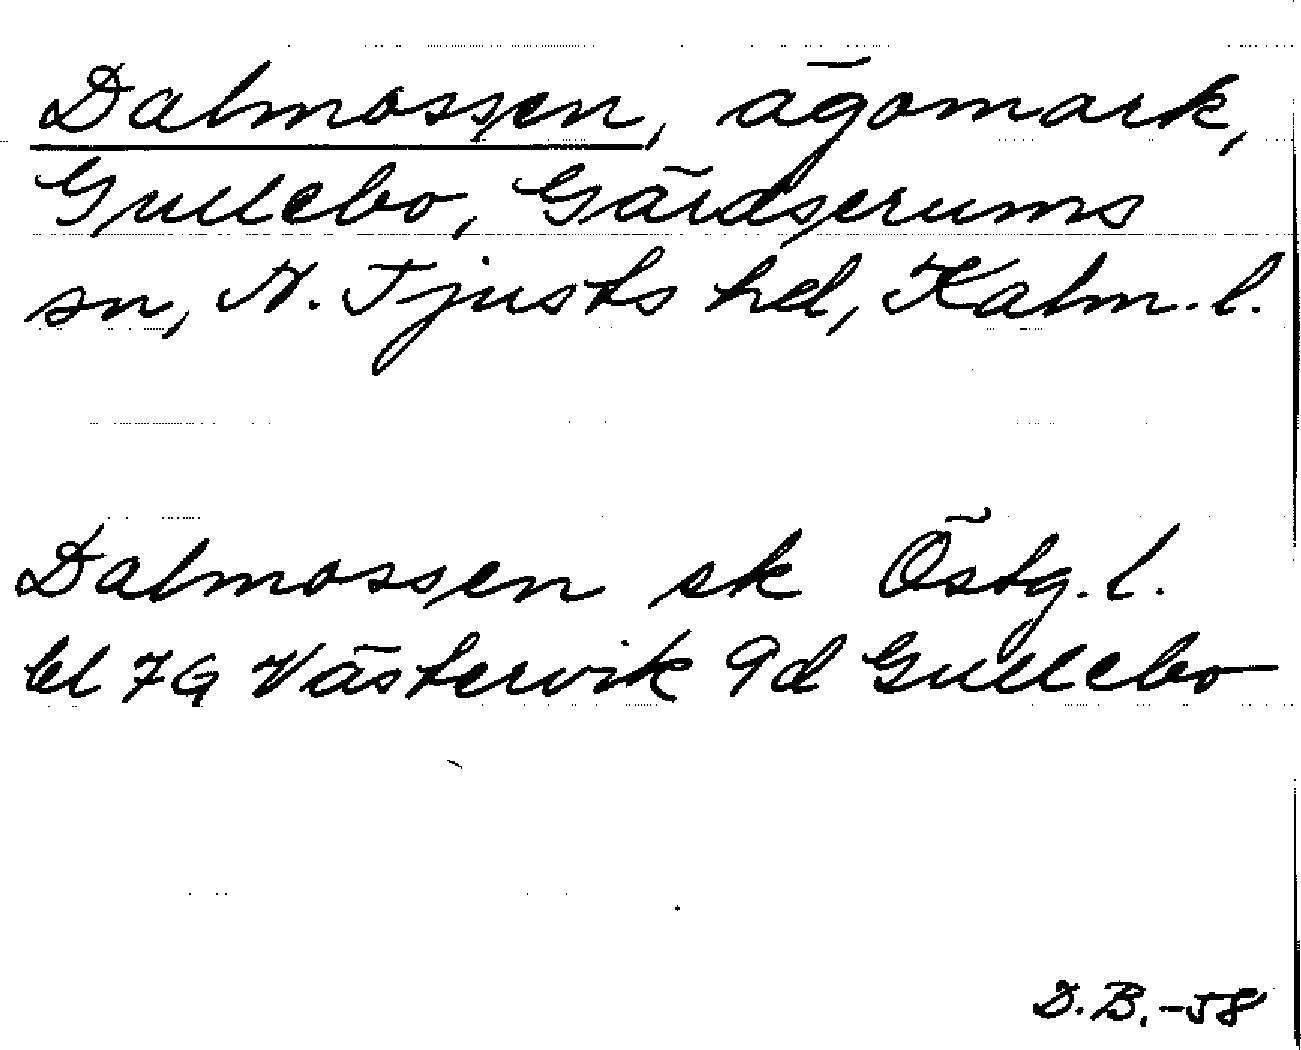 Dalmossen, ägomark,
Gullebo, Gärdserums
sn, N. Tjusts hd, Kalm. l.
Dalmossen ek Östg. l.
bl 7G Västervik 9d Gullebo
D.B.-58